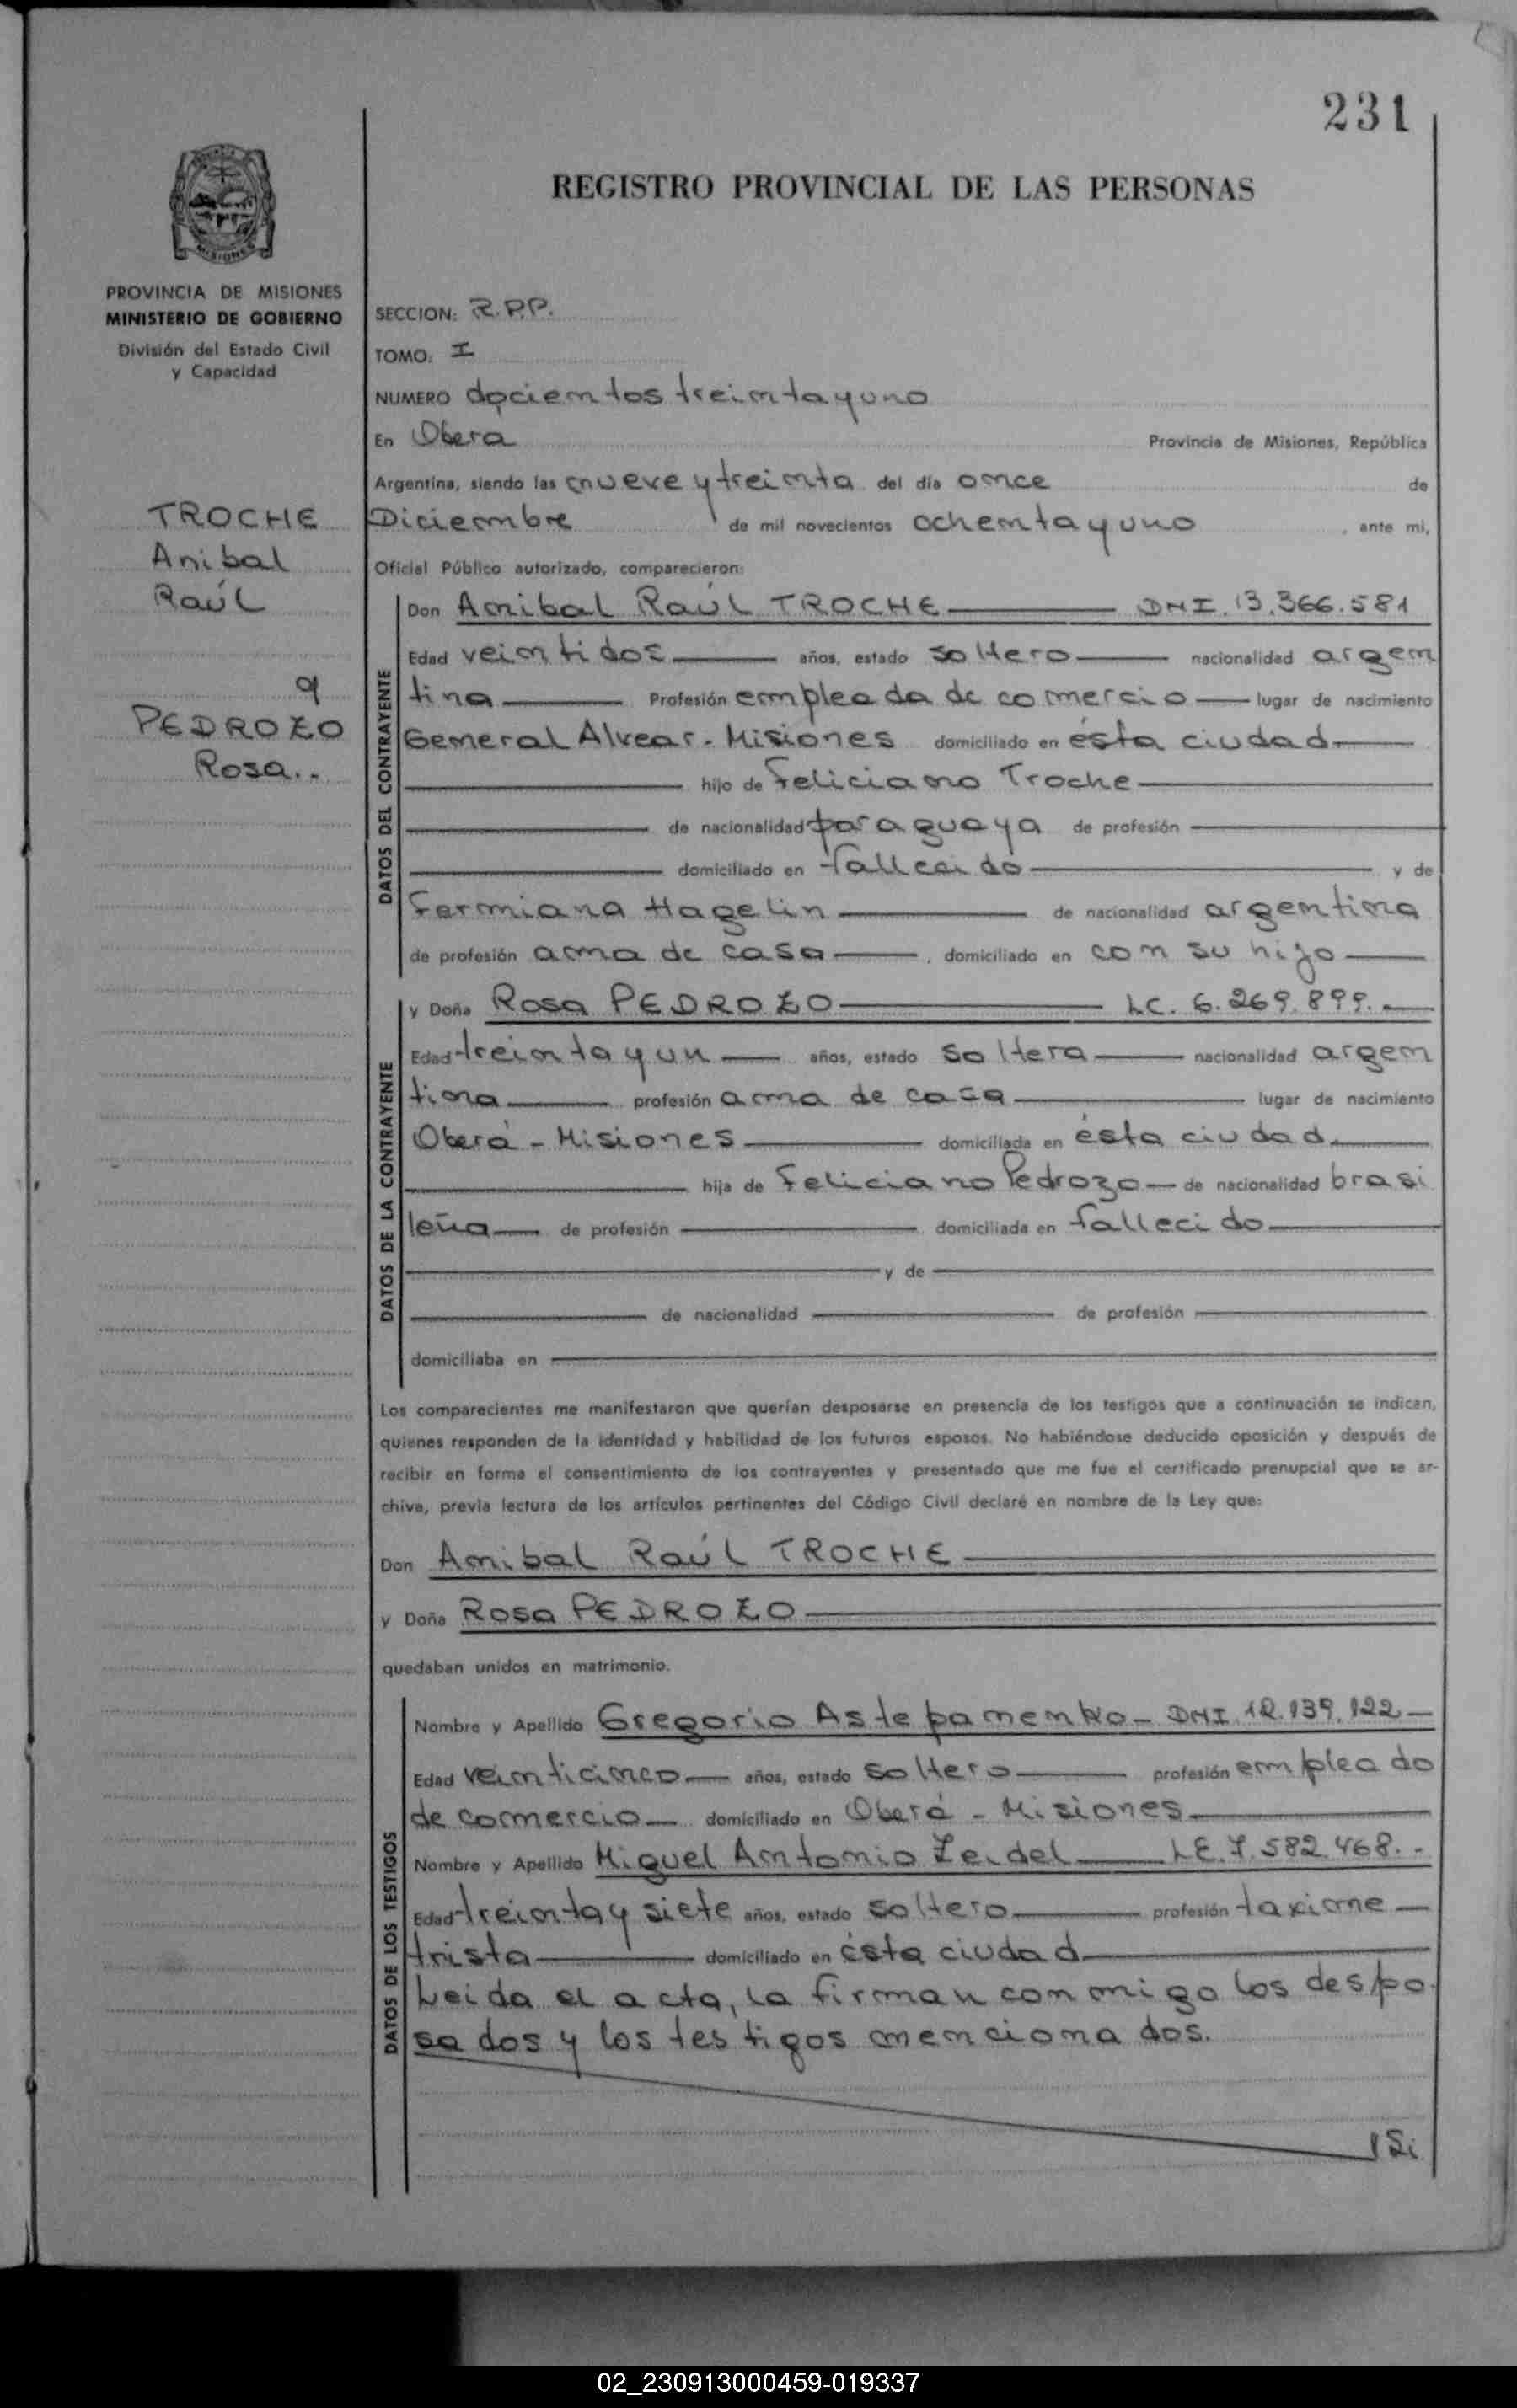 231
REGISTRO PROVINCIAL DE LAS PERSONAS
MISIONES
PROVINCIA DE MISIONES
MINISTERIO DE GOBIERNO
División del Estado Civil
y Capacidad
TROCHE
Anibal
Raúl
y
PEDROZO
Rosa..
SECCION: R.P.P.
TOMO: I
NUMERO docientos treinta y uno
En Obera Provincia de Misiones, República
Argentina, siendo las nueve y treinta del día once de
Diciembre de mil novecientos ochenta y uno, ante mi,
Oficial Público autorizado, comparecieron:
DATOS DEL CONTRAYENTE
Don Anibal Raúl TROCHE DNI. 13.366.581
Edad veintidos años, estado soltero nacionalidad argen
tina Profesión empleado de comercio lugar de nacimiento
General Alvear - Misiones domiciliado en ésta ciudad
hijo de Feliciano Troche
de nacionalidad paraguaya de profesión
domiciliado en fallecido y de
Fermiana Hagelin de nacionalidad argentina
de profesión ama de casa, domiciliado en con su hijo
DATOS DE LA CONTRAYENTE
y Doña Rosa PEDROZO LC. 6.269.899.
Edad treinta y un años, estado soltera nacionalidad argen
tina profesión ama de casa lugar de nacimiento
Oberá - Misiones domiciliada en ésta ciudad
hija de Feliciano Pedrozo de nacionalidad brasi
leña de profesión domiciliada en fallecido
y de
de nacionalidad de profesión
domiciliaba en
Los comparecientes me manifestaron que querían desposarse en presencia de los testigos que a continuación se indican,
quienes responden de la identidad y habilidad de los futuros esposos. No habiéndose deducido oposición y después de
recibir en forma el consentimiento de los contrayentes y presentado que me fue el certificado prenupcial que se ar-
chiva, previa lectura de los artículos pertinentes del Código Civil declaré en nombre de la Ley que:
Don Anibal Raúl TROCHE
y Doña Rosa PEDROZO
quedaban unidos en matrimonio.
DATOS DE LOS TESTIGOS
Nombre y Apellido Gregorio Astepamenko - DNI. 12.139.122
Edad veinticinco años, estado soltero profesión empleado
de comercio domiciliado en Oberá - Misiones
Nombre y Apellido Miguel Antonio Zeidel LE. 7.582.468.
Edad treinta y siete años, estado soltero profesión taxime
trista domiciliado en ésta ciudad
Leida el acta, la firman conmigo los despo
sados y los testigos mencionados.
02_230913000459-019337